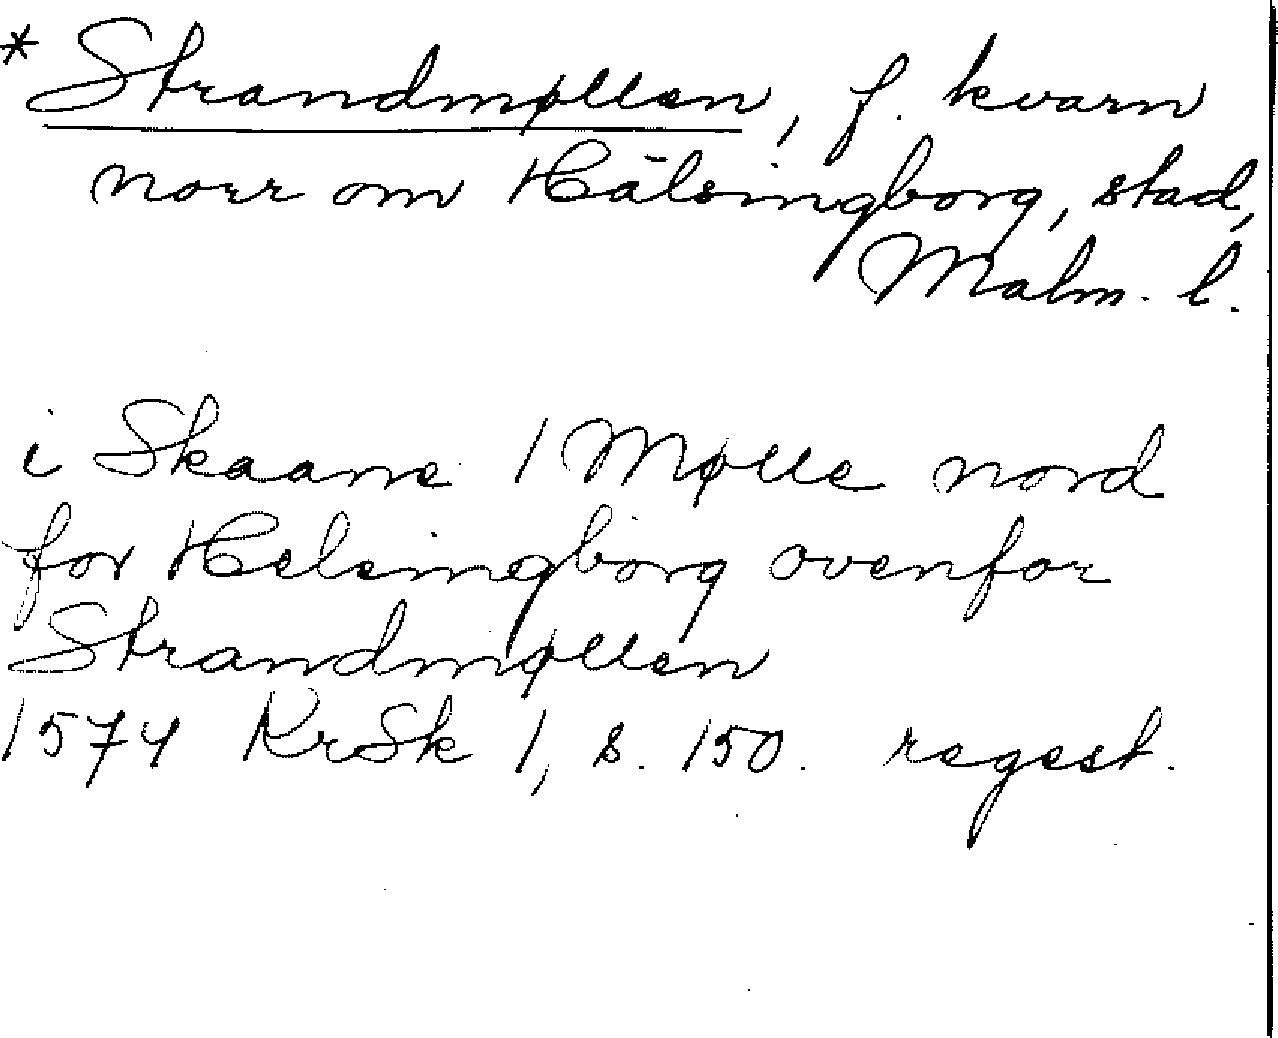 * Strandmøllen, f. kvarn
norr om Hälsingborg, stad,
Malm. l.
i Skaane 1 Mølle nord
for Helsingborg ovenfor
Strandmøllen
1574 KrSk 1, s. 150. regest.